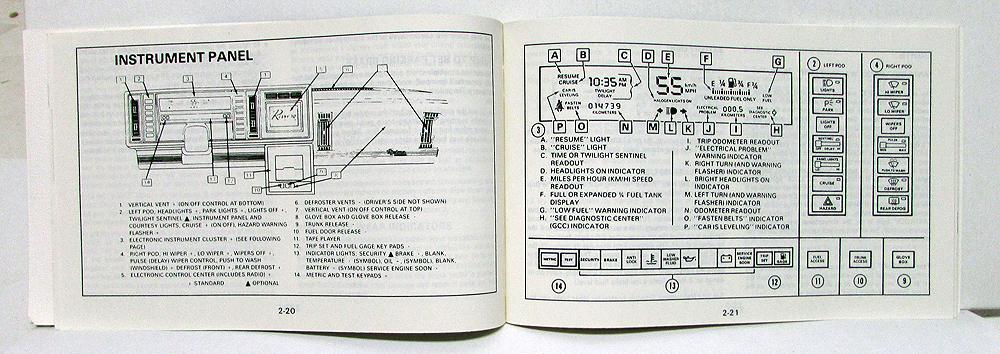 INSTRUMENT PANEL
Riviera
1. VERTICAL VENT + (ON OFF CONTROL AT BOTTOM)
2. LEFT POD, HEADLIGHTS +, PARK LIGHTS +, LIGHTS OFF +,
TWILIGHT SENTINEL ▲, INSTRUMENT PANEL AND
COURTESY LIGHTS, CRUISE + (ON OFF), HAZARD WARNING
FLASHER +
3. ELECTRONIC INSTRUMENT CLUSTER + (SEE FOLLOWING
PAGE)
4. RIGHT POD: HI WIPER +, LO WIPER +, WIPERS OFF +,
PULSE (DELAY) WIPER CONTROL, PUSH TO WASH
(WINDSHIELD) + DEFROST (FRONT) +, REAR DEFROST +
5. ELECTRONIC CONTROL CENTER (INCLUDES RADIO) +
6. DEFROSTER VENTS + (DRIVER'S SIDE NOT SHOWN)
7. VERTICAL VENT (ON OFF CONTROL AT TOP)
8. GLOVE BOX AND GLOVE BOX RELEASE +
9. TRUNK RELEASE +
10. FUEL DOOR RELEASE +
11. TAPE PLAYER
12. TRIP SET AND FUEL GAGE KEY PADS +
13. INDICATOR LIGHTS, SECURITY ▲ BRAKE +, BLANK,
TEMPERATURE + (SYMBOL) OIL +, (SYMBOL), BLANK,
BATTERY + (SYMBOL) SERVICE ENGINE SOON +
14. METRIC AND TEST KEYPADS +
+ STANDARD ▲ OPTIONAL
2-20
A B C D E F G
RESUME
CRUISE
CAR IS
LEVELING
FASTEN
BELTS
10:35 AM
PM
TWILIGHT
DELAY
014739
KILOMETERS
55 km/h
MPH
HALOGEN LIGHTS ON
E ¼ ½ ¾ F
UNLEADED FUEL ONLY
LOW
FUEL
ELECTRICAL
PROBLEM
000.5
KILOMETERS
SEE
DIAGNOSTIC
CENTER
3 P O N M L K J I H
A. "RESUME" LIGHT
B. "CRUISE" LIGHT
C. TIME OR TWILIGHT SENTINEL
READOUT
D. HEADLIGHTS ON INDICATOR
E. MILES PER HOUR (KM/H) SPEED
READOUT
F. FULL OR EXPANDED ¼ FUEL TANK
DISPLAY
G. "LOW FUEL" WARNING INDICATOR
H. "SEE DIAGNOSTIC CENTER"
(GCC) INDICATOR
I. TRIP ODOMETER READOUT
J. "ELECTRICAL PROBLEM"
WARNING INDICATOR
K. RIGHT TURN (AND WARNING
FLASHER) INDICATOR
L. BRIGHT HEADLIGHTS ON
INDICATOR
M. LEFT TURN (AND WARNING
FLASHER) INDICATOR
N. ODOMETER READOUT
O. "FASTEN BELTS" INDICATOR
P. "CAR IS LEVELING" INDICATOR
METRIC TEST SECURITY BRAKE ANTI
LOCK LOW
WASHER
FLUID SERVICE
ENGINE
SOON TRIP
SET GAGE
14 13 12
2 LEFT POD
LIGHTS
PARK
LIGHTS
OFF
SENTINEL
OFF DELAY
PANEL LIGHTS
CRUISE
HAZARD
4 RIGHT POD
HI WIPER
LO WIPER
WIPERS
OFF
PULSE
PUSH TO WASH
DEFROST
REAR DEFOG
FUEL
ACCESS
TRUNK
ACCESS
GLOVE
BOX
11 10 9
2-21